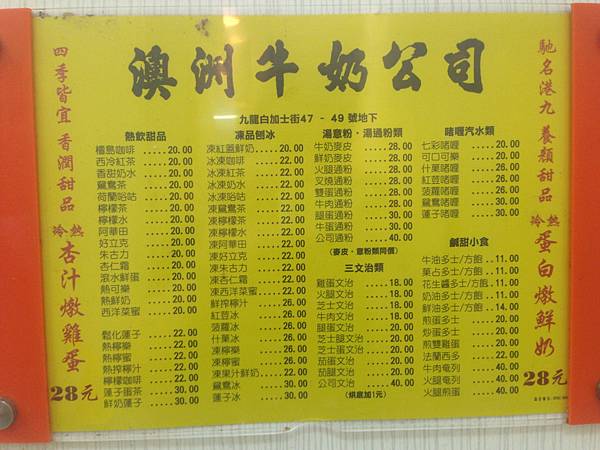 澳洲牛奶公司
九龍白加士街47 - 49 號地下
馳名港九 養顏甜品
冷熱 蛋白燉鮮奶
28元
四季皆宜 香潤甜品
冷熱 杏汁燉雞蛋
28元
熱飲甜品
檀島咖啡 .....20.00
西冷紅茶 .....20.00
香甜奶水 .....20.00
鴛鴦茶 .....20.00
荷蘭哈咕 .....20.00
檸檬茶 .....20.00
檸檬水 .....20.00
阿華田 .....20.00
好立克 .....20.00
朱古力 .....20.00
杏仁霜 .....20.00
滾水鮮蛋 .....20.00
熱可樂 .....20.00
熱鮮奶 .....20.00
西洋菜蜜 .....20.00
鬆化蓮子 .....22.00
熱檸樂 .....22.00
熱檸蜜 .....22.00
熱搾檸汁 .....22.00
檸檬咖啡 .....22.00
蓮子蛋茶 .....30.00
鮮奶蓮子 .....30.00
凍品刨冰
凍紅蓋鮮奶 .....20.00
冰凍咖啡 .....22.00
冰凍紅茶 .....22.00
冰凍奶水 .....22.00
冰凍哈咕 .....22.00
凍鴛鴦茶 .....22.00
凍檸檬茶 .....22.00
凍檸檬水 .....22.00
凍阿華田 .....22.00
凍好立克 .....22.00
凍朱古力 .....22.00
凍杏仁霜 .....22.00
凍西洋菜蜜 .....22.00
鮮搾檸汁 .....26.00
紅荳冰 .....26.00
菠蘿冰 .....26.00
什菓冰 .....26.00
凍檸樂 .....26.00
凍檸蜜 .....26.00
凍果汁鮮奶 .....22.00
鴛鴦冰 .....30.00
蓮子冰 .....30.00
湯意粉·湯通粉類
牛奶麥皮 .....28.00
鮮奶麥皮 .....28.00
火腿通粉 .....28.00
叉燒通粉 .....28.00
雙蛋通粉 .....28.00
牛肉通粉 .....28.00
腿蛋通粉 .....30.00
牛蛋通粉 .....30.00
公司通粉 .....40.00
(麥皮·意粉類同價)
三文治類
雞蛋文治 .....18.00
火腿文治 .....18.00
芝士文治 .....18.00
牛肉文治 .....18.00
腿蛋文治 .....20.00
芝士腿文治 .....20.00
芝士蛋文治 .....20.00
茄蛋文治 .....20.00
茄腿文治 .....20.00
公司文治 .....40.00
(烘底加1元)
啫喱汽水類
七彩啫喱 .....20.00
可口可樂 .....20.00
什菓啫喱 .....26.00
紅荳啫喱 .....26.00
菠蘿啫喱 .....26.00
鴛鴦啫喱 .....30.00
蓮子啫喱 .....30.00
鹹甜小食
牛油多士/方飽 ..11.00
菓占多士/方飽 ..11.00
花生醬多士/方飽 ..11.00
奶油多士/方飽 ..11.00
鮮油多士/方飽 ..14.00
煎蛋多士 .....20.00
炒蛋多士 .....20.00
煎雙雞蛋 .....20.00
法蘭西多 .....22.00
牛肉奄列 .....40.00
火腿奄列 .....40.00
火腿煎蛋 .....40.00